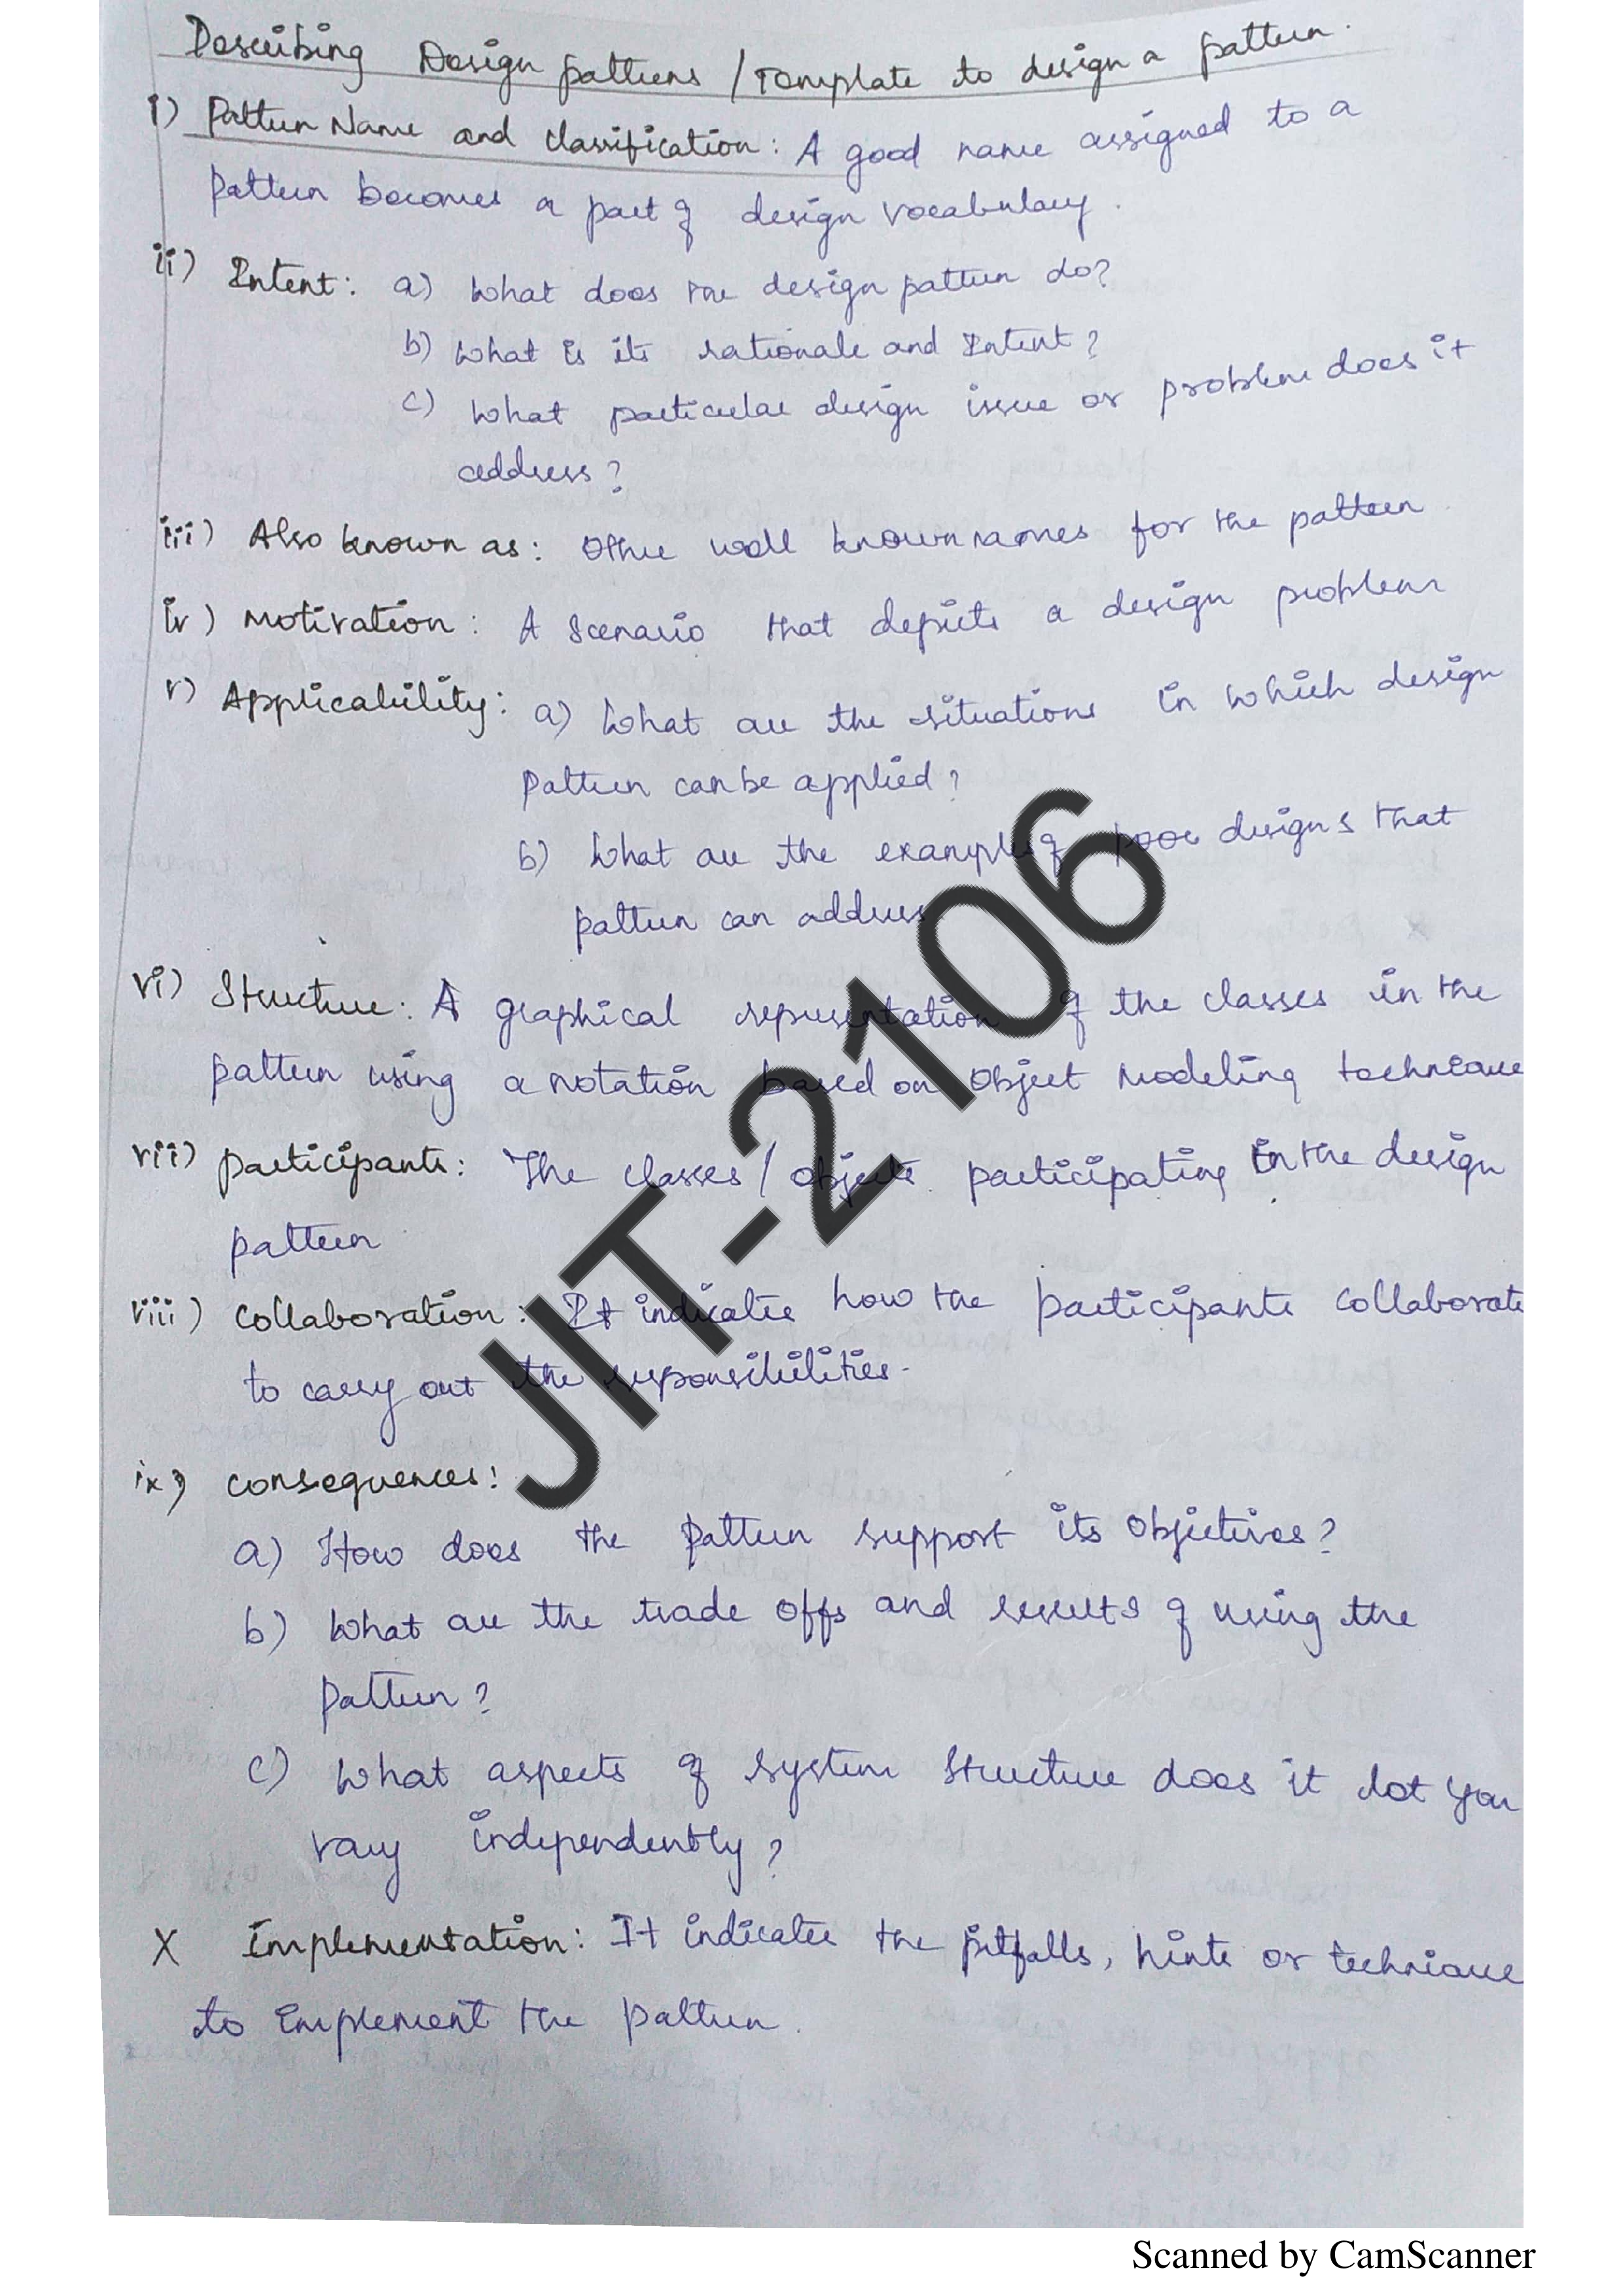 Describing Design patterns / Template to design a pattern.
i) Pattern Name and classification: A good name assigned to a
pattern becomes a part of design vocabulary.
ii) Intent: a) What does the design pattern do?
b) What is its rationale and Intent?
c) What particular design issue or problem does it
address?
iii) Also known as: Other well known names for the pattern.
iv) Motivation: A Scenario that depicts a design problem
v) Applicability: a) What are the situations in which design
pattern can be applied?
b) What are the examples of poor designs that
pattern can address
vi) Structure: A graphical representation of the classes in the
pattern using a notation based on Object Modeling technique
vii) participants: The classes / objects participating in the design
pattern
viii) Collaboration: It indicates how the participants collaborate
to carry out the responsibilities.
ix) consequences:
a) How does the pattern support its objectives?
b) What are the trade offs and results of using the
pattern?
c) What aspects of system structure does it let you
vary independently?
X Implementation: It indicates the pitfalls, hints or technique
to implement the pattern.
JIT-2106
Scanned by CamScanner